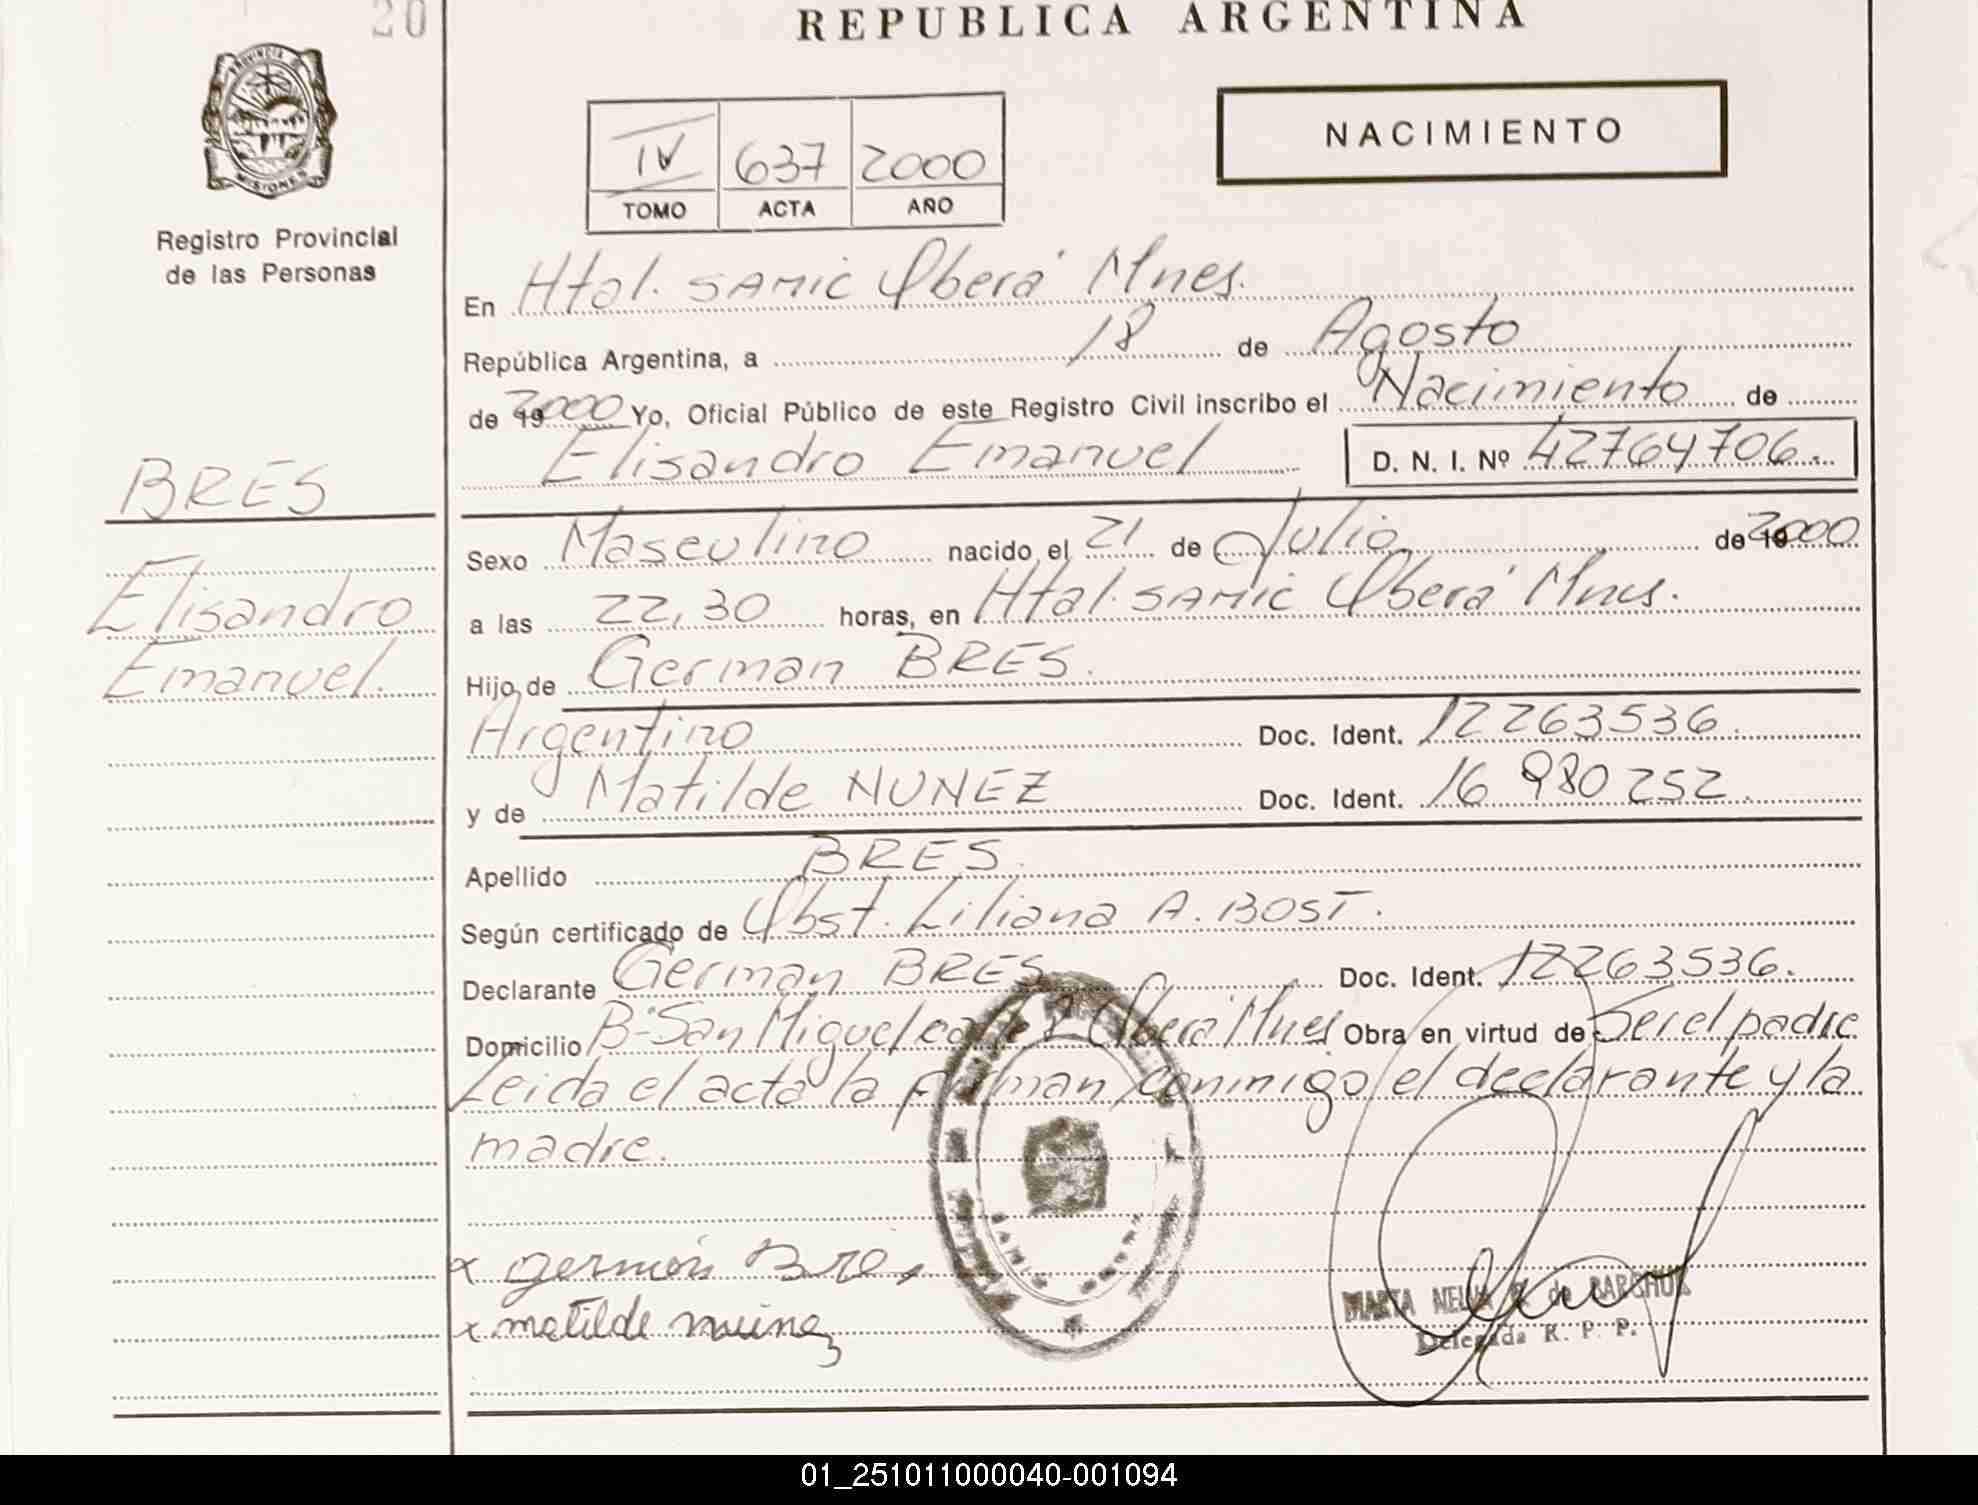 20
REPUBLICA ARGENTINA
PROVINCIA DE
MISIONES
Registro Provincial
de las Personas
IV 637 2000
TOMO ACTA AÑO
NACIMIENTO
En Htal. SAMIC Oberá Mnes.
República Argentina, a 18 de Agosto
de 19 2000 Yo, Oficial Público de este Registro Civil inscribo el Nacimiento de
Elisandro Emanuel D. N. I. Nº 42764706.
BRES
Elisandro
Emanuel.
Sexo Masculino nacido el 21 de Julio de 19 2000
a las 22,30 horas, en Htal. SAMIC Oberá Mnes.
Hijo de German BRES.
Argentino Doc. Ident. 12263536.
y de Matilde NUNEZ Doc. Ident. 16 980 252.
Apellido BRES.
Según certificado de Obst. Liliana A. BOST.
Declarante German BRES Doc. Ident. 12263536.
Domicilio Bº San Miguel calle 2 Oberá Mnes Obra en virtud de Ser el padre
Leida el acta la firman conmigo el declarante y la
madre.
x germán Bres
x matilde nuñez
MARTA NELIDA de BARCHUK
Delegada R. P. P.
01_251011000040-001094